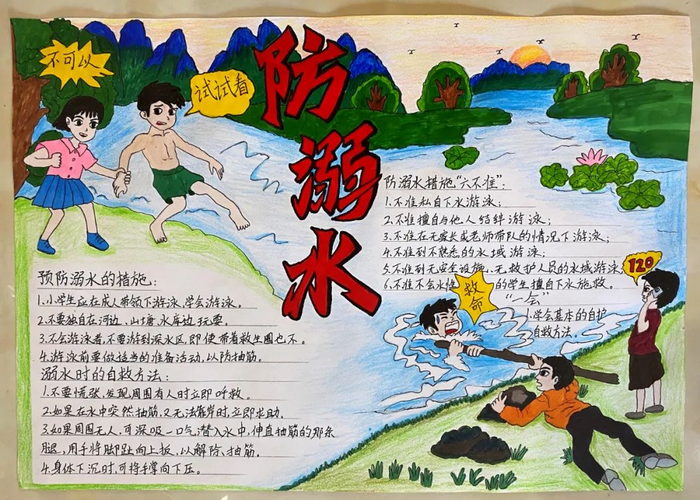 不可以
试试看
防溺水
预防溺水的措施:
1.小学生应在成人带领下游泳,学会游泳。
2.不要独自在河边、山塘、水库边玩耍。
3.不会游泳者,不要游到深水区,即使带着救生圈也不。
4.游泳前要做适当的准备活动,以防抽筋。
溺水时的自救方法:
1.不要慌张,发现周围有人时立即呼救。
2.如果在水中突然抽筋,又无法靠岸时,立即求助。
3.如果周围无人,可深吸一口气潜入水中,伸直抽筋的那条
腿,用手将脚趾向上扳,以解除抽筋。
4.身体下沉时,可将手掌向下压。
防溺水措施"六不准":
1.不准私自下水游泳;
2.不准擅自与他人结伴游泳;
3.不准在无家长或老师带队的情况下游泳;
4.不准到不熟悉的水域游泳;
5.不准到无安全设施、无救护人员的水域游泳
6.不准不会水性的学生擅自下水施救。
"一会"
1.学会基本的自护
自救方法。
救命
120